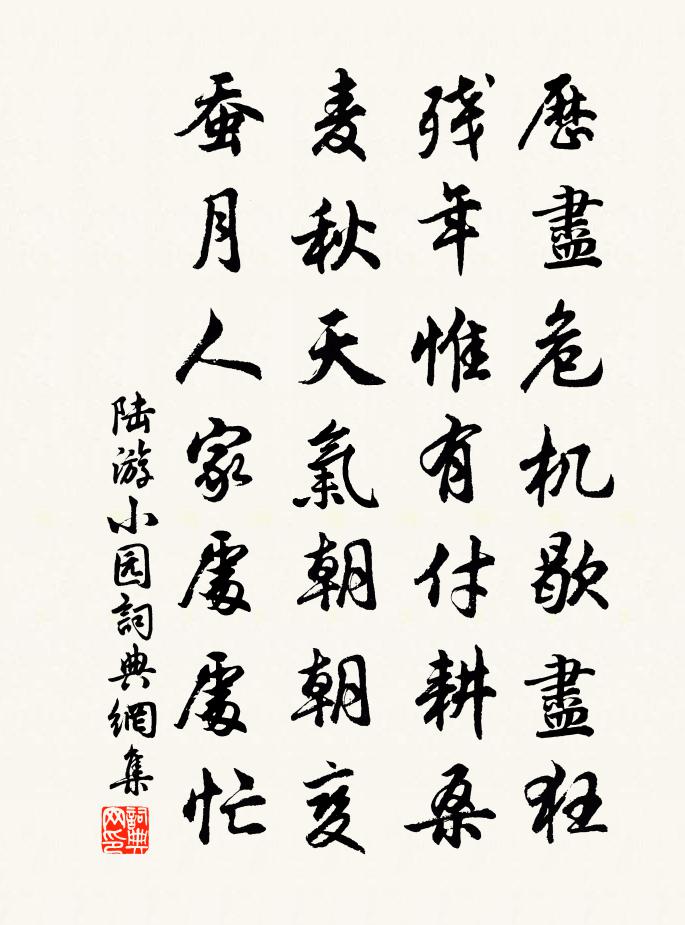 歷盡危机歇盡狂
残年惟有付耕桑
麦秋天氣朝朝变
蚕月人家處處忙
陆游小园詞典網集
詞典网印